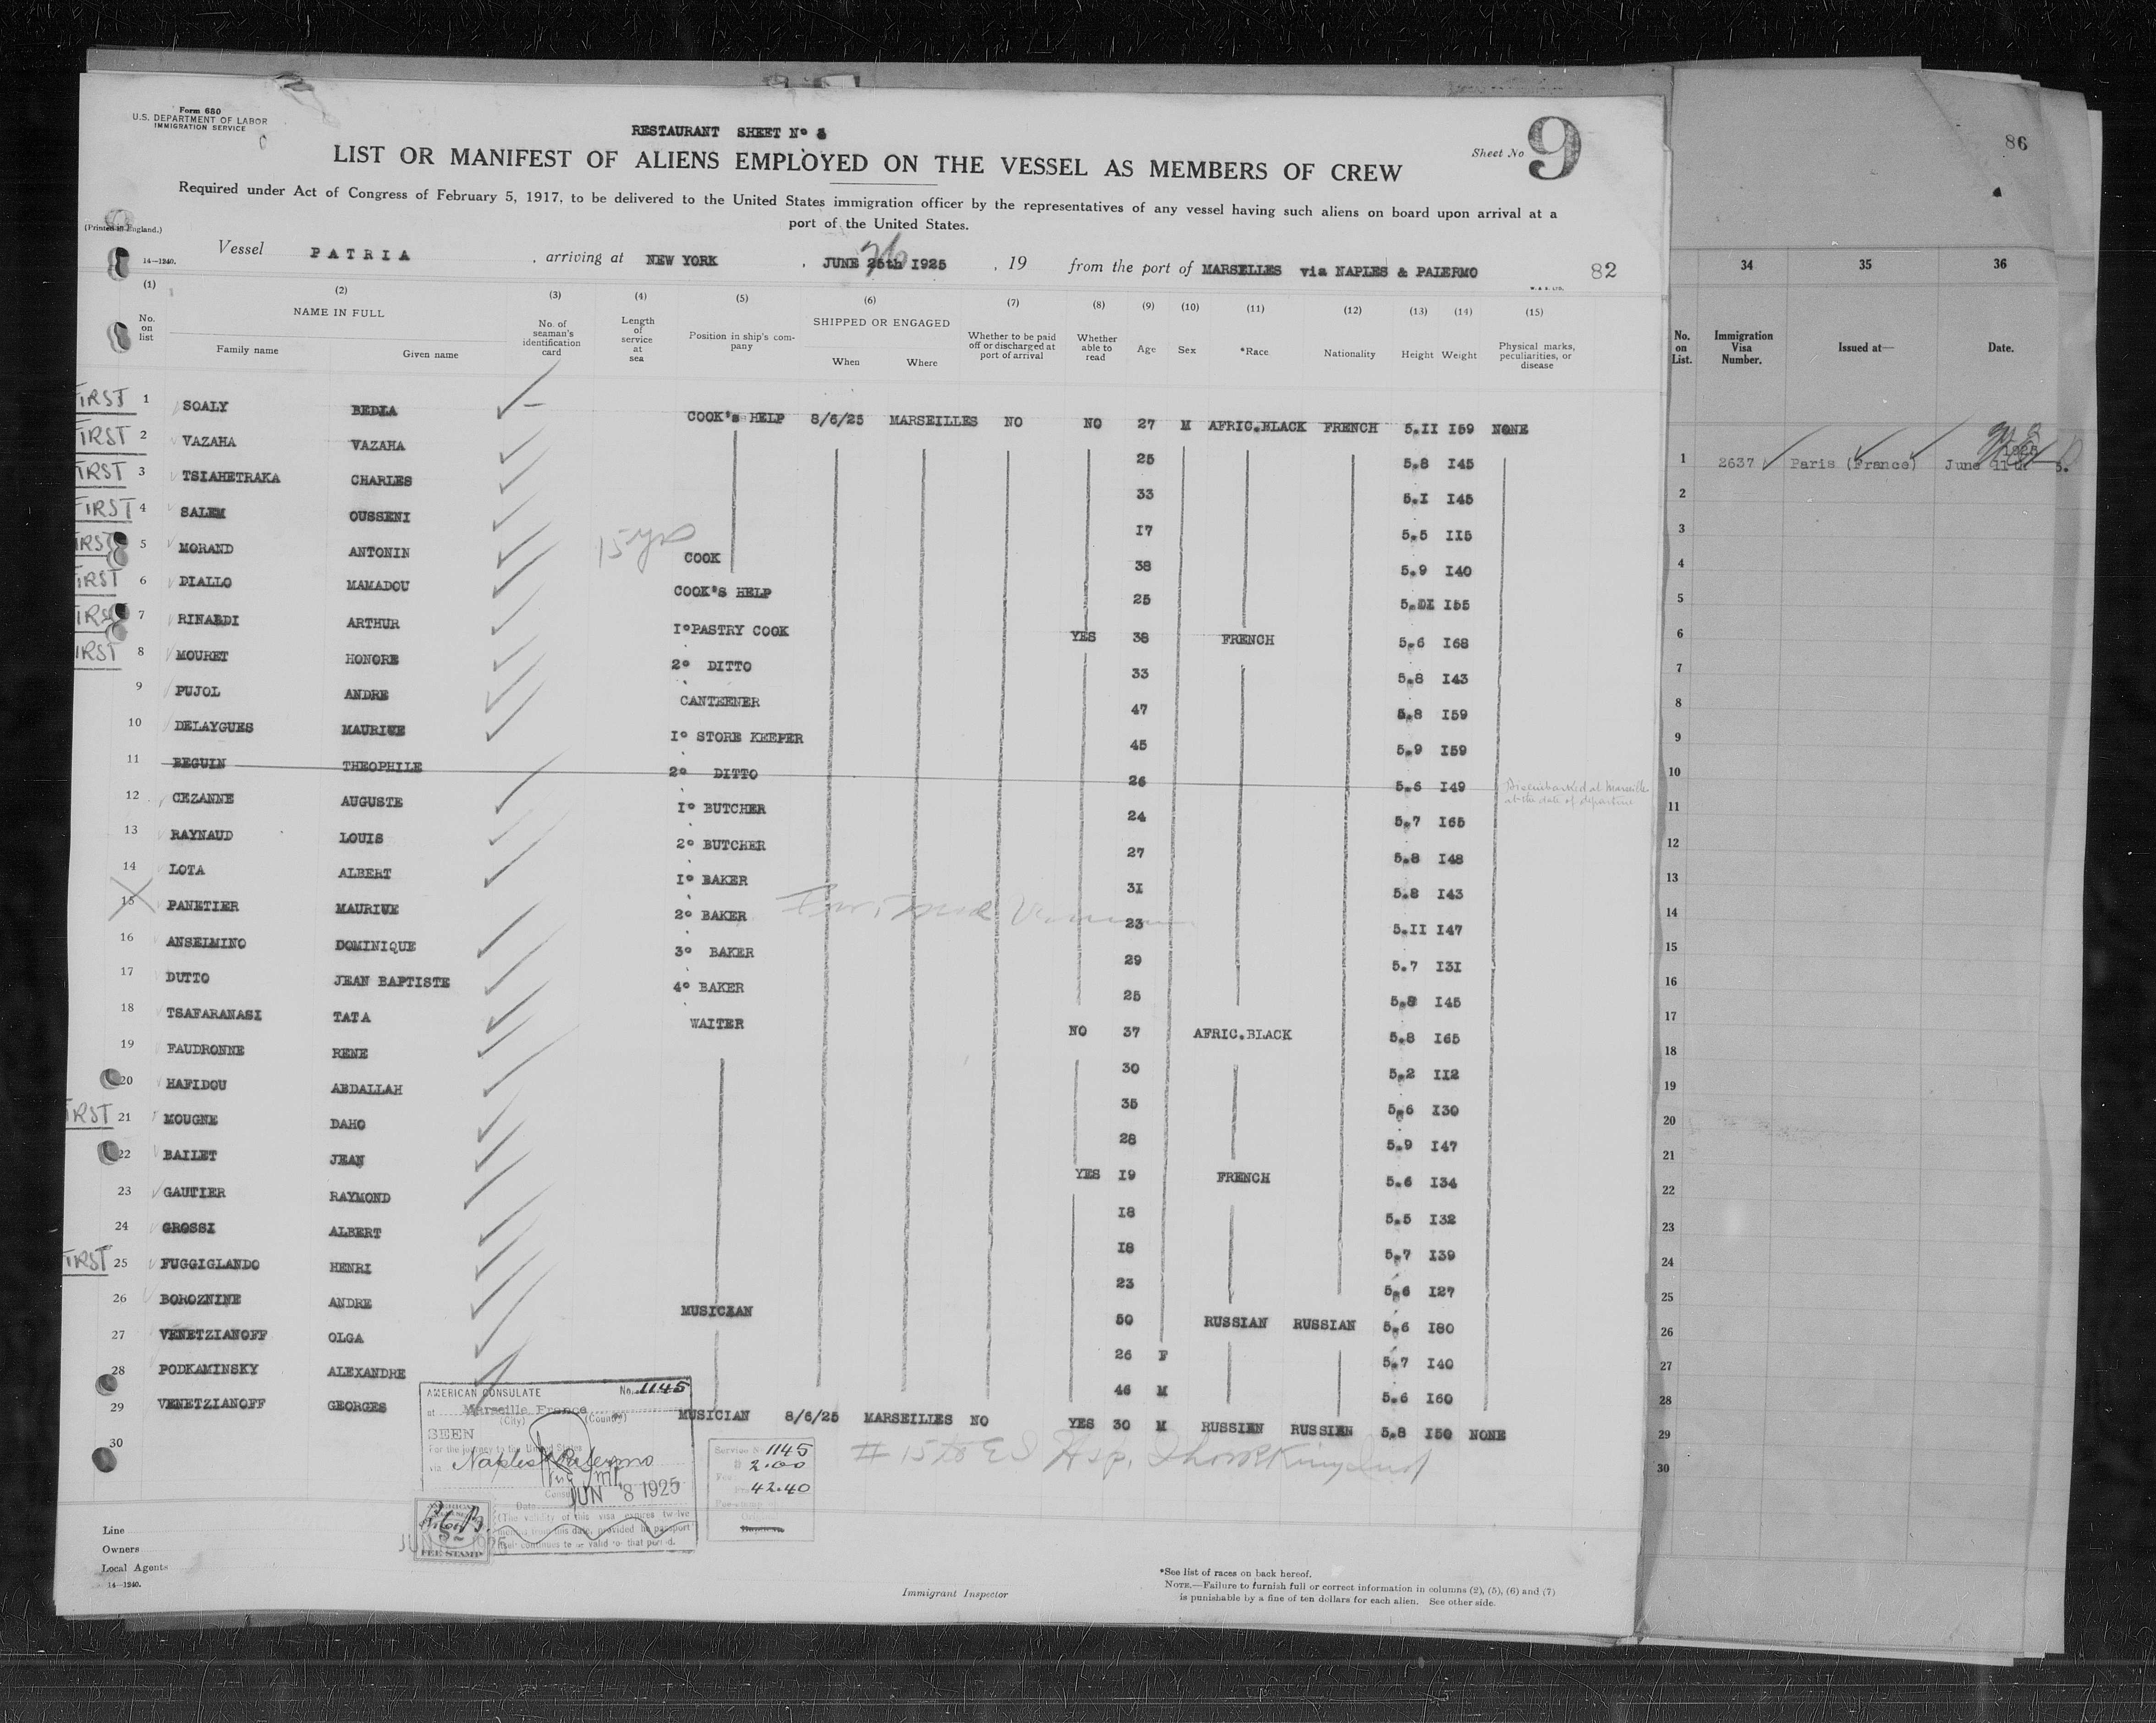 Form 680
U.S. DEPARTMENT OF LABOR
IMMIGRATION SERVICE
RESTAURANT SHEET Nº 3
LIST OR MANIFEST OF ALIENS EMPLOYED ON THE VESSEL AS MEMBERS OF CREW
Sheet No 9
Required under Act of Congress of February 5, 1917, to be delivered to the United States immigration officer by the representatives of any vessel having such aliens on board upon arrival at a
port of the United States.
(Printed in England.)
14—1240.
Vessel PATRIA , arriving at NEW YORK , JUNE 25th 1925 26 , 19 from the port of MARSELLES via NAPLES & PALERMO 82
W. & S. LTD.
(1) (2) (3) (4) (5) (6) (7) (8) (9) (10) (11) (12) (13) (14) (15)
No. on list NAME IN FULL Family name Given name No. of seaman's identification card Length of service at sea Position in ship's company SHIPPED OR ENGAGED When Where Whether to be paid off or discharged at port of arrival Whether able to read Age Sex *Race Nationality Height Weight Physical marks, peculiarities, or disease
FIRST 1 SOALY BEDIA COOK's HELP 8/6/25 MARSEILLES NO NO 27 M AFRIC.BLACK FRENCH 5.II I59 NONE
FIRST 2 VAZAHA VAZAHA 25 5.8 I45
FIRST 3 TSIAHETRAKA CHARLES 33 5.I I45
FIRST 4 SALEM OUSSENI I7 5.5 II5
FIRST 5 MORAND ANTONIN 15 yrs COOK 38 5.9 I40
FIRST 6 DIALLO MAMADOU COOK'S HELP 25 I55
FIRST 7 RINARDI ARTHUR Iº PASTRY COOK YES 38 FRENCH 5.6 I68
FIRST 8 MOURET HONORE 2º DITTO 33 5.8 I43
9 PUJOL ANDRE CANTEENER 47 5.8 I59
10 DELAYGUES MAURICE Iº STORE KEEPER 45 5.9 I59
11 BEGUIN THEOPHILE 2º DITTO 26 5.6 I49 Disembarked at Marseille at the date of departure
12 CEZANNE AUGUSTE Iº BUTCHER 24 5.7 I65
13 RAYNAUD LOUIS 2º BUTCHER 27 5.8 I48
14 LOTA ALBERT Iº BAKER 3I 5.8 I43
15 PANETIER MAURICE 2º BAKER 23 5.II I47
16 ANSELMINO DOMINIQUE 3º BAKER 29 5.7 I3I
17 DUTTO JEAN BAPTISTE 4º BAKER 25 5.8 I45
18 TSAFARANASI TATA WAITER NO 37 AFRIC.BLACK 5.8 I65
19 FAUDRONNE RENE 30 5.2 II2
20 HAFIDOU ABDALLAH 35 5.6 I30
FIRST 21 MOUGNE DAHO 28 5.9 I47
22 BAILET JEAN YES I9 FRENCH 5.6 I34
23 GAUTIER RAYMOND I8 5.5 I32
24 GROSSI ALBERT I8 5.7 I39
FIRST 25 FUGGIGLANDO HENRI 23 5.6 I27
26 BOROZNINE ANDRE MUSICIAN 50 RUSSIAN RUSSIAN 5.6 I80
27 VENETZIANOFF OLGA 26 F 5.7 I40
28 PODKAMINSKY ALEXANDRE 46 M 5.6 I60
29 VENETZIANOFF GEORGES MUSICIAN 8/6/25 MARSEILLES NO YES 30 M RUSSIEN RUSSIEN 5.8 I50 NONE
30
# 15 to E I Hsp.
AMERICAN CONSULATE No. 1145
at Marseille France
(City) (Country)
SEEN
For the journey to the United States
via Naples Palermo
JUN 8 1925
Date
(The validity of this visa expires twelve
months from this date, provided the passport
itself continues to be valid for that period.
Service No 1145
2.00
42.40
FEE STAMP
JUN 1925
Line
Owners
Local Agents
14—1240.
Immigrant Inspector
*See list of races on back hereof.
NOTE.—Failure to furnish full or correct information in columns (2), (5), (6) and (7)
is punishable by a fine of ten dollars for each alien. See other side.
86
34 35 36
No. on List. Immigration Visa Number. Issued at— Date.
1 2637 Paris (France) June 11
2
3
4
5
6
7
8
9
10
11
12
13
14
15
16
17
18
19
20
21
22
23
24
25
26
27
28
29
30